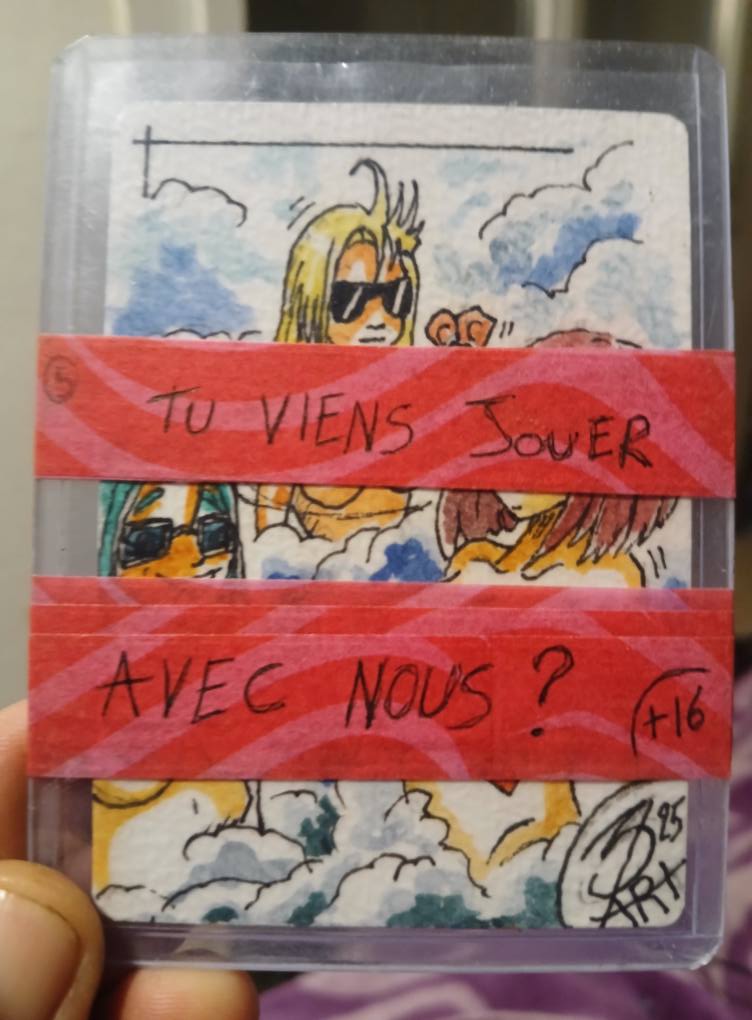 5
TU VIENS JOUER
AVEC NOUS ?
+16
25
ART